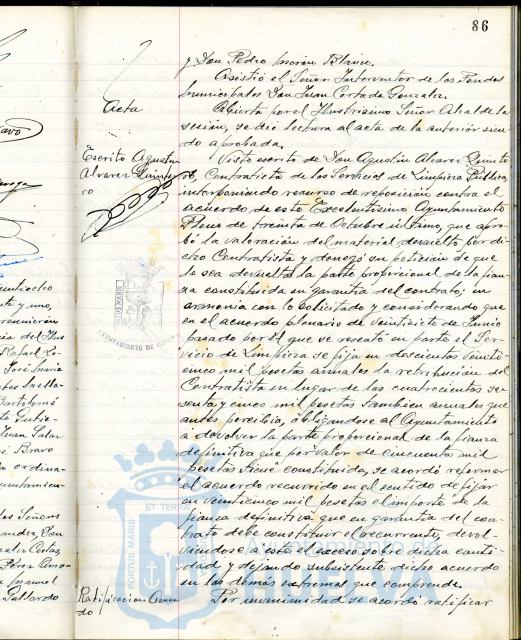 86
y Don Pedro Morán Blanco.
Asistió el Señor Interventor de los Fondos
Municipales Don Juan Cortada Gonzalez.
Acta
Abierta por el Ilustrisimo Señor Alcalde la
sesión, se dió lectura al acta de la anterior sien
do aprobada.
Escrito Agustin
Alvarez Quinte
ro
Visto escrito de Don Agustin Alvarez Quinte
ro, Contratista de los Servicios de Limpieza Pública,
interponiendo recurso de reposición contra el
acuerdo de este Excelentisimo Ayuntamiento
Pleno de treinta de Octubre último, que apro
bó la valoración del material devuelto por di
cho Contratista y denegó su petición de que
le sea devuelta la parte proporcional de la fian
za constituida en garantia del contrato; en
armonia con lo solicitado y considerando que
en el acuerdo plenario de veintisiete de Junio
pasado por el que se rescató en parte el Ser
vicio de Limpieza se fija en doscientas veinti
cinco mil pesetas anuales la retribución del
Contratista en lugar de las cuatrocientas se
senta y cinco mil pesetas tambien anuales que
antes percibia, obligandose al Ayuntamiento
a devolver la parte proporcional de la fianza
definitiva que por valor de cincuenta mil
pesetas tiene constituida, se acordó reformar
el acuerdo recurrido en el sentido de fijar
en veinticinco mil pesetas el importe de la
fianza definitiva que en garantia del con
trato debe constituir el recurrente, devol-
viendose a este el exceso sobre dicha canti-
dad y dejando subsistente dicho acuerdo
en los demás extremos que comprende.
Ratificacion Acuer
do
Por unanimidad se acordó ratificar
PORTUS MARIS
ET TERRAE
Ayuntamiento de
HUELVA